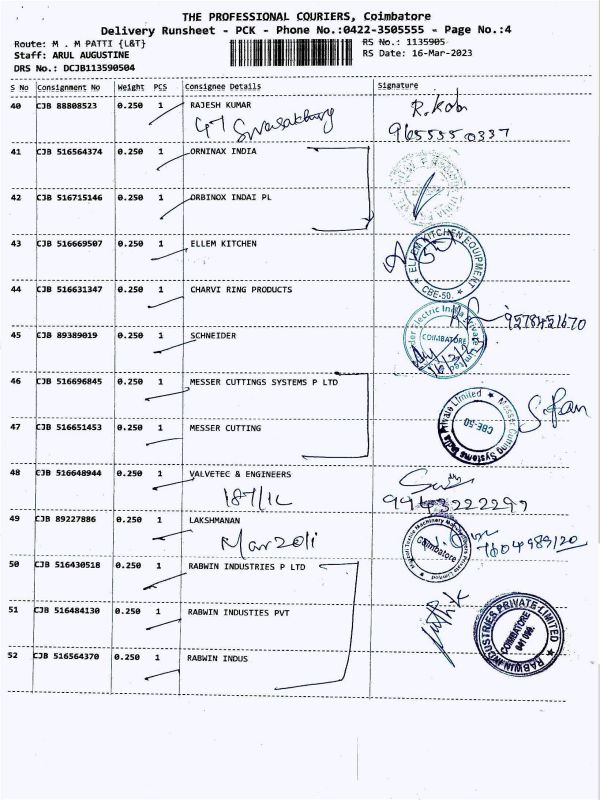 THE PROFESSIONAL COURIERS, Coimbatore
Delivery Runsheet - PCK - Phone No.:0422-3505555 - Page No.:4
Route: M . M PATTI {L&T}
RS No.: 1135905
Staff: ARUL AUGUSTINE
RS Date: 16-Mar-2023
DRS No.: DCJB113590504
S No Consignment No Weight PCS Consignee Details Signature
40 CJB 88808523 0.250 1 RAJESH KUMAR
9655550337
41 CJB 516564374 0.250 1 ORNINAX INDIA
42 CJB 516715146 0.250 1 ORBINOX INDAI PL
43 CJB 516669507 0.250 1 ELLEM KITCHEN
ELLEM KITCHEN EQUIPMENT
CBE-50.
44 CJB 516631347 0.250 1 CHARVI RING PRODUCTS
9578451670
45 CJB 89389019 0.250 1 SCHNEIDER
Electric India Private Limited
COIMBATORE
46 CJB 516696845 0.250 1 MESSER CUTTINGS SYSTEMS P LTD
Messer Cutting Systems India Private Limited
CBE-50
47 CJB 516651453 0.250 1 MESSER CUTTING
48 CJB 516648944 0.250 1 VALVETEC & ENGINEERS
187/1C
49 CJB 89227886 0.250 1 LAKSHMANAN
Coimbatore
50 CJB 516430518 0.250 1 RABWIN INDUSTRIES P LTD
51 CJB 516484130 0.250 1 RABWIN INDUSTIES PVT
RABWIN INDUSTRIES PRIVATE LIMITED
COIMBATORE
52 CJB 516564370 0.250 1 RABWIN INDUS